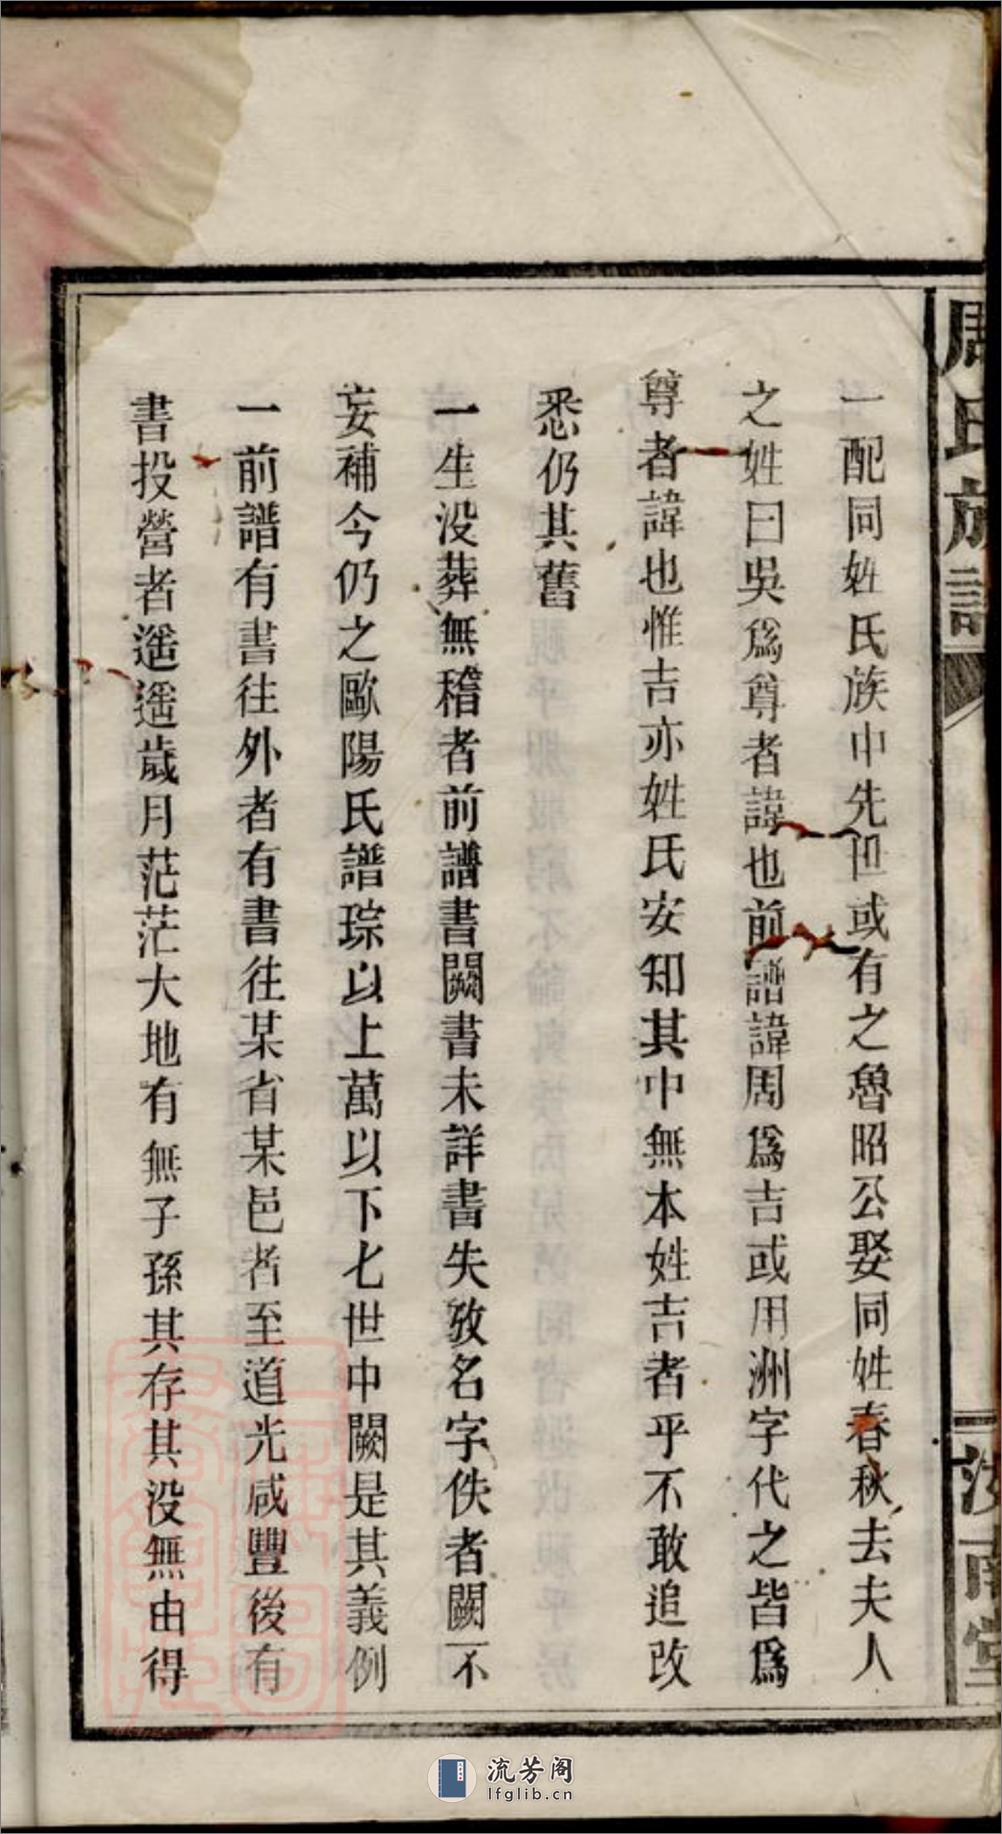 周氏族譜
汝南堂
一配同姓氏族中先世或有之魯昭公娶同姓春秋去夫人
之姓曰吳爲尊者諱也前譜諱周爲吉或用洲字代之皆爲
尊者諱也惟吉亦姓氏安知其中無本姓吉者乎不敢追改
悉仍其舊
一生没葬無稽者前譜書闕書未詳書失攷名字佚者闕不
妄補今仍之歐陽氏譜琮以上萬以下七世中闕是其義例
一前譜有書往外者有書往某省某邑者至道光咸豐後有
書投營者遥遥歲月茫茫大地有無子孫其存其没無由得
流芳阁
lfglib.cn